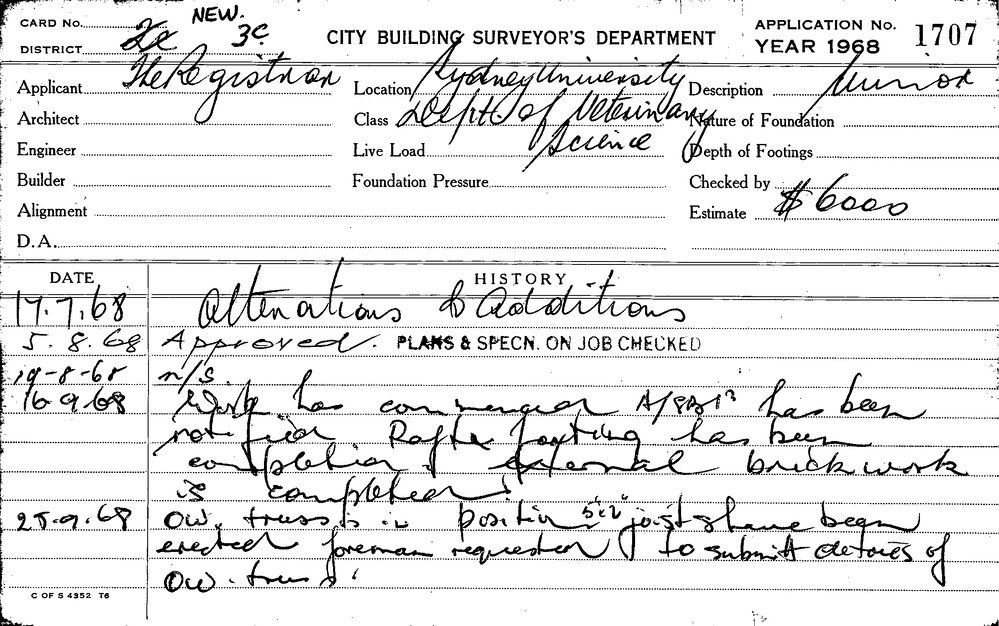 NEW.
CARD No. 2c 3c.
DISTRICT
CITY BUILDING SURVEYOR'S DEPARTMENT
APPLICATION No. 1707
YEAR 1968
Applicant The Registrar
Location Sydney University
Description Minor
Architect
Class Dept. of Veterinary
Nature of Foundation
Engineer
Live Load Science
Depth of Footings
Builder
Foundation Pressure
Checked by
Alignment
Estimate $6000
D.A.
DATE HISTORY
17.7.68 Alterations & Additions
5.8.68 Approved. PLANS & SPECN. ON JOB CHECKED
19-8-68 n/s.
16.9.68 Work has commenced has been
notified has been
completion external brickwork
is completed
25.9.68 OW. truss is in position 5"x2" joists have been
erected foreman requested to submit details of
OW. truss
C OF S 4352 T6